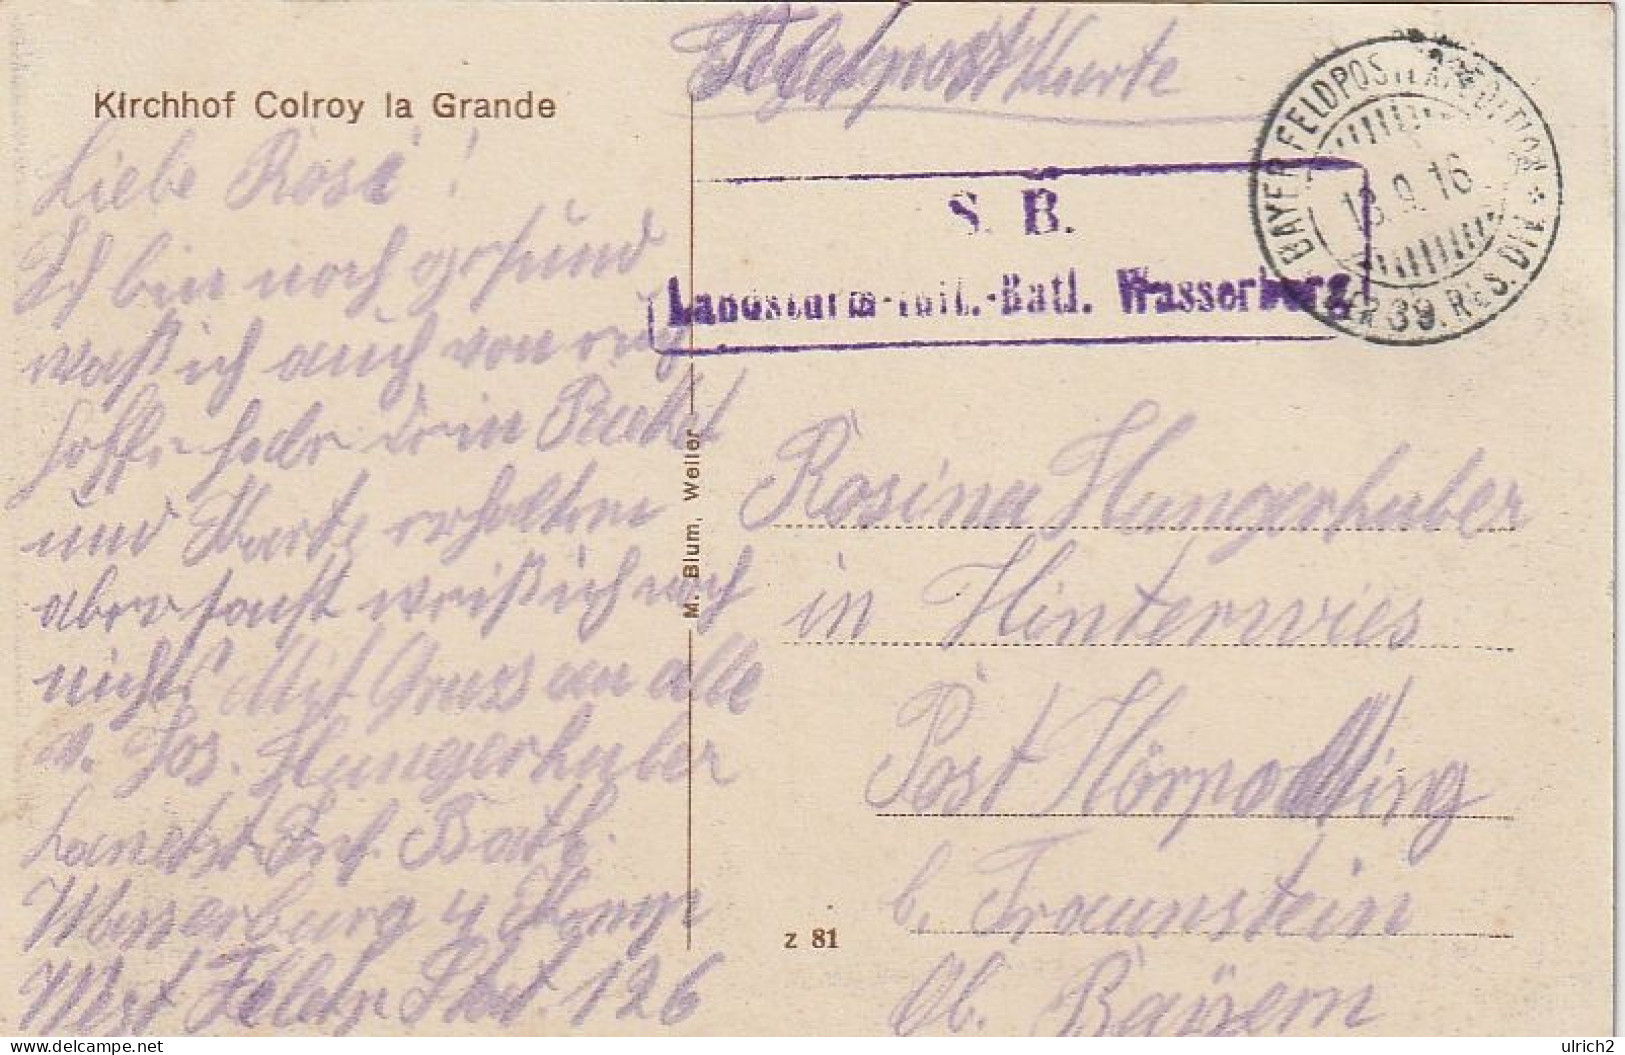 Feldpost Karte
Kirchhof Colroy la Grande
BAYER. FELDPOSTEXPEDITION * DER 39. RES. DIV. *
13.9.16
S. B.
Landsturm-Inft.-Batl. Wasserburg
Liebe Rosi!
Ich bin noch gesund
waß ich auch von euch
hoffe habe dein Paket
und Karte erhalten
aber sonst weiß ich noch
nichts Mit Gruss an alle
v. Jos. Hungerhuber
Landst. Inf. Batl.
Wasserburg 4 Komp
West Feldp. Stat. 126
M. Blum, Weiler
Rosina Hungerhuber
in Hinterwies
Post Hörpolding
b. Traunstein
Ob. Bayern
Z 81
delcampe.net
ulrich2